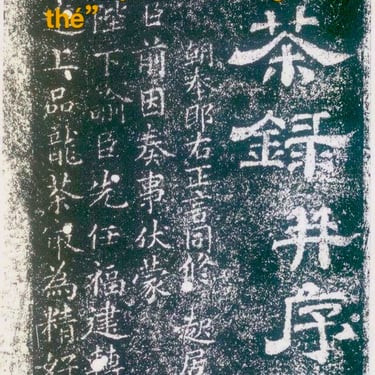 thé”
茶録并序
朝奉郎右正言同修 起居
臣前因奏事伏蒙
陛下諭臣先任福建轉
上品龍茶冣為精好